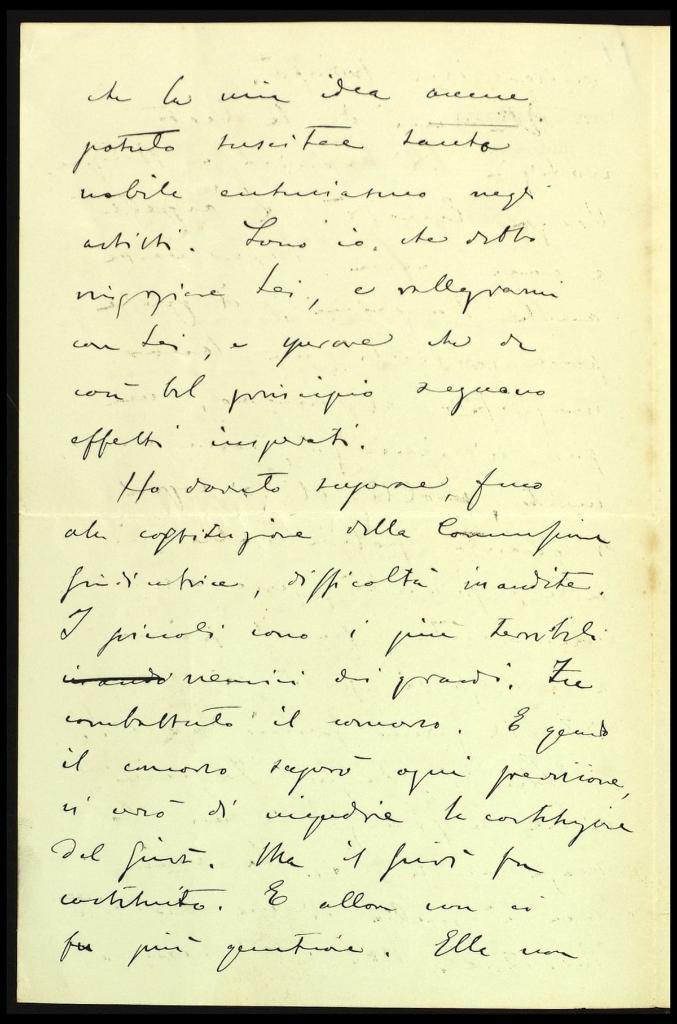 che la mia idea avesse
potuto suscitare tanto
nobile entusiasmo negli
artisti. Sono io, che debbo
ringraziare Lei, e rallegrarmi
con Lei, e sperare che da
così bel principio seguano
effetti insperati.
Ho dovuto superare, fino
alla costituzione della Commissione
giudicatrice, difficoltà inaudite.
I piccoli sono i più terribili
nemici dei grandi. Fu
combattuto il concorso. E quando
il concorso superò ogni previsione,
si cercò di impedire la costituzione
del Giurì. Ma il Giurì fu
costituito. E allora non ci
fu più questione. Ella non